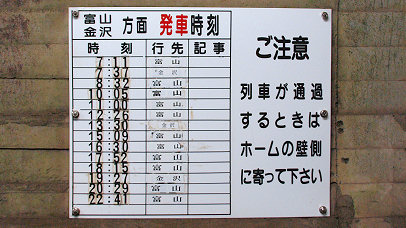 富山
金沢 方面 発車時刻
時 刻 行先 記事
7:11 富 山
7:37 金 沢
8:32 富 山
10:05 富 山
11:00 富 山
12:26 富 山
13:30 金 沢
15:09 富 山
16:30 富 山
17:52 富 山
18:15 富 山
19:27 金 沢
20:29 富 山
22:41 富 山
ご注意
列車が通過
するときは
ホームの壁側
に寄って下さい